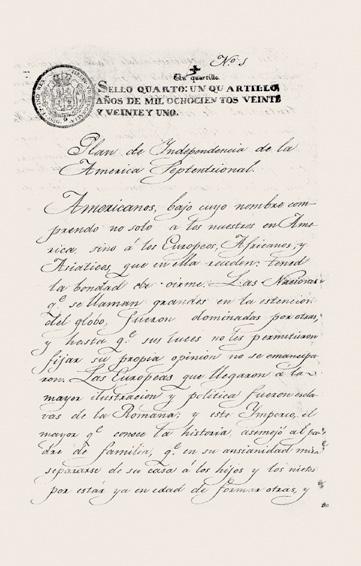 No. 1
Un quartillo.
SELLO QUARTO: UN QUARTILLO
AÑOS DE MIL OCHOCIENTOS VEINTE
Y VEINTE Y UNO.
Plan de Independencia de la
America Septentrional.
Americanos, bajo cuyo nombre com-
prendo no solo a los nuestros en Ame-
rica, sino á los Europeos, Africanos, y
Asiaticos, que en ella reciden: tened
la bondad de oirme. Las Naciones
q.e se llaman grandes en la estencion
del globo, fueron dominadas por otras,
y hasta q.e sus luces no les permitieron
fijar su propia opinion no se emancipa-
ron. Las Européas que llegaron á la
mayor ilustracion y politica fueron escla-
vas de la Romana; y este Imperio, el
mayor q.e conoce la historia, asemejó al pa-
dre de familia, q.e en su ansianidad mira
separarse de su casa á los hijos y los nietos
por estár ya en edad de formar otras, y